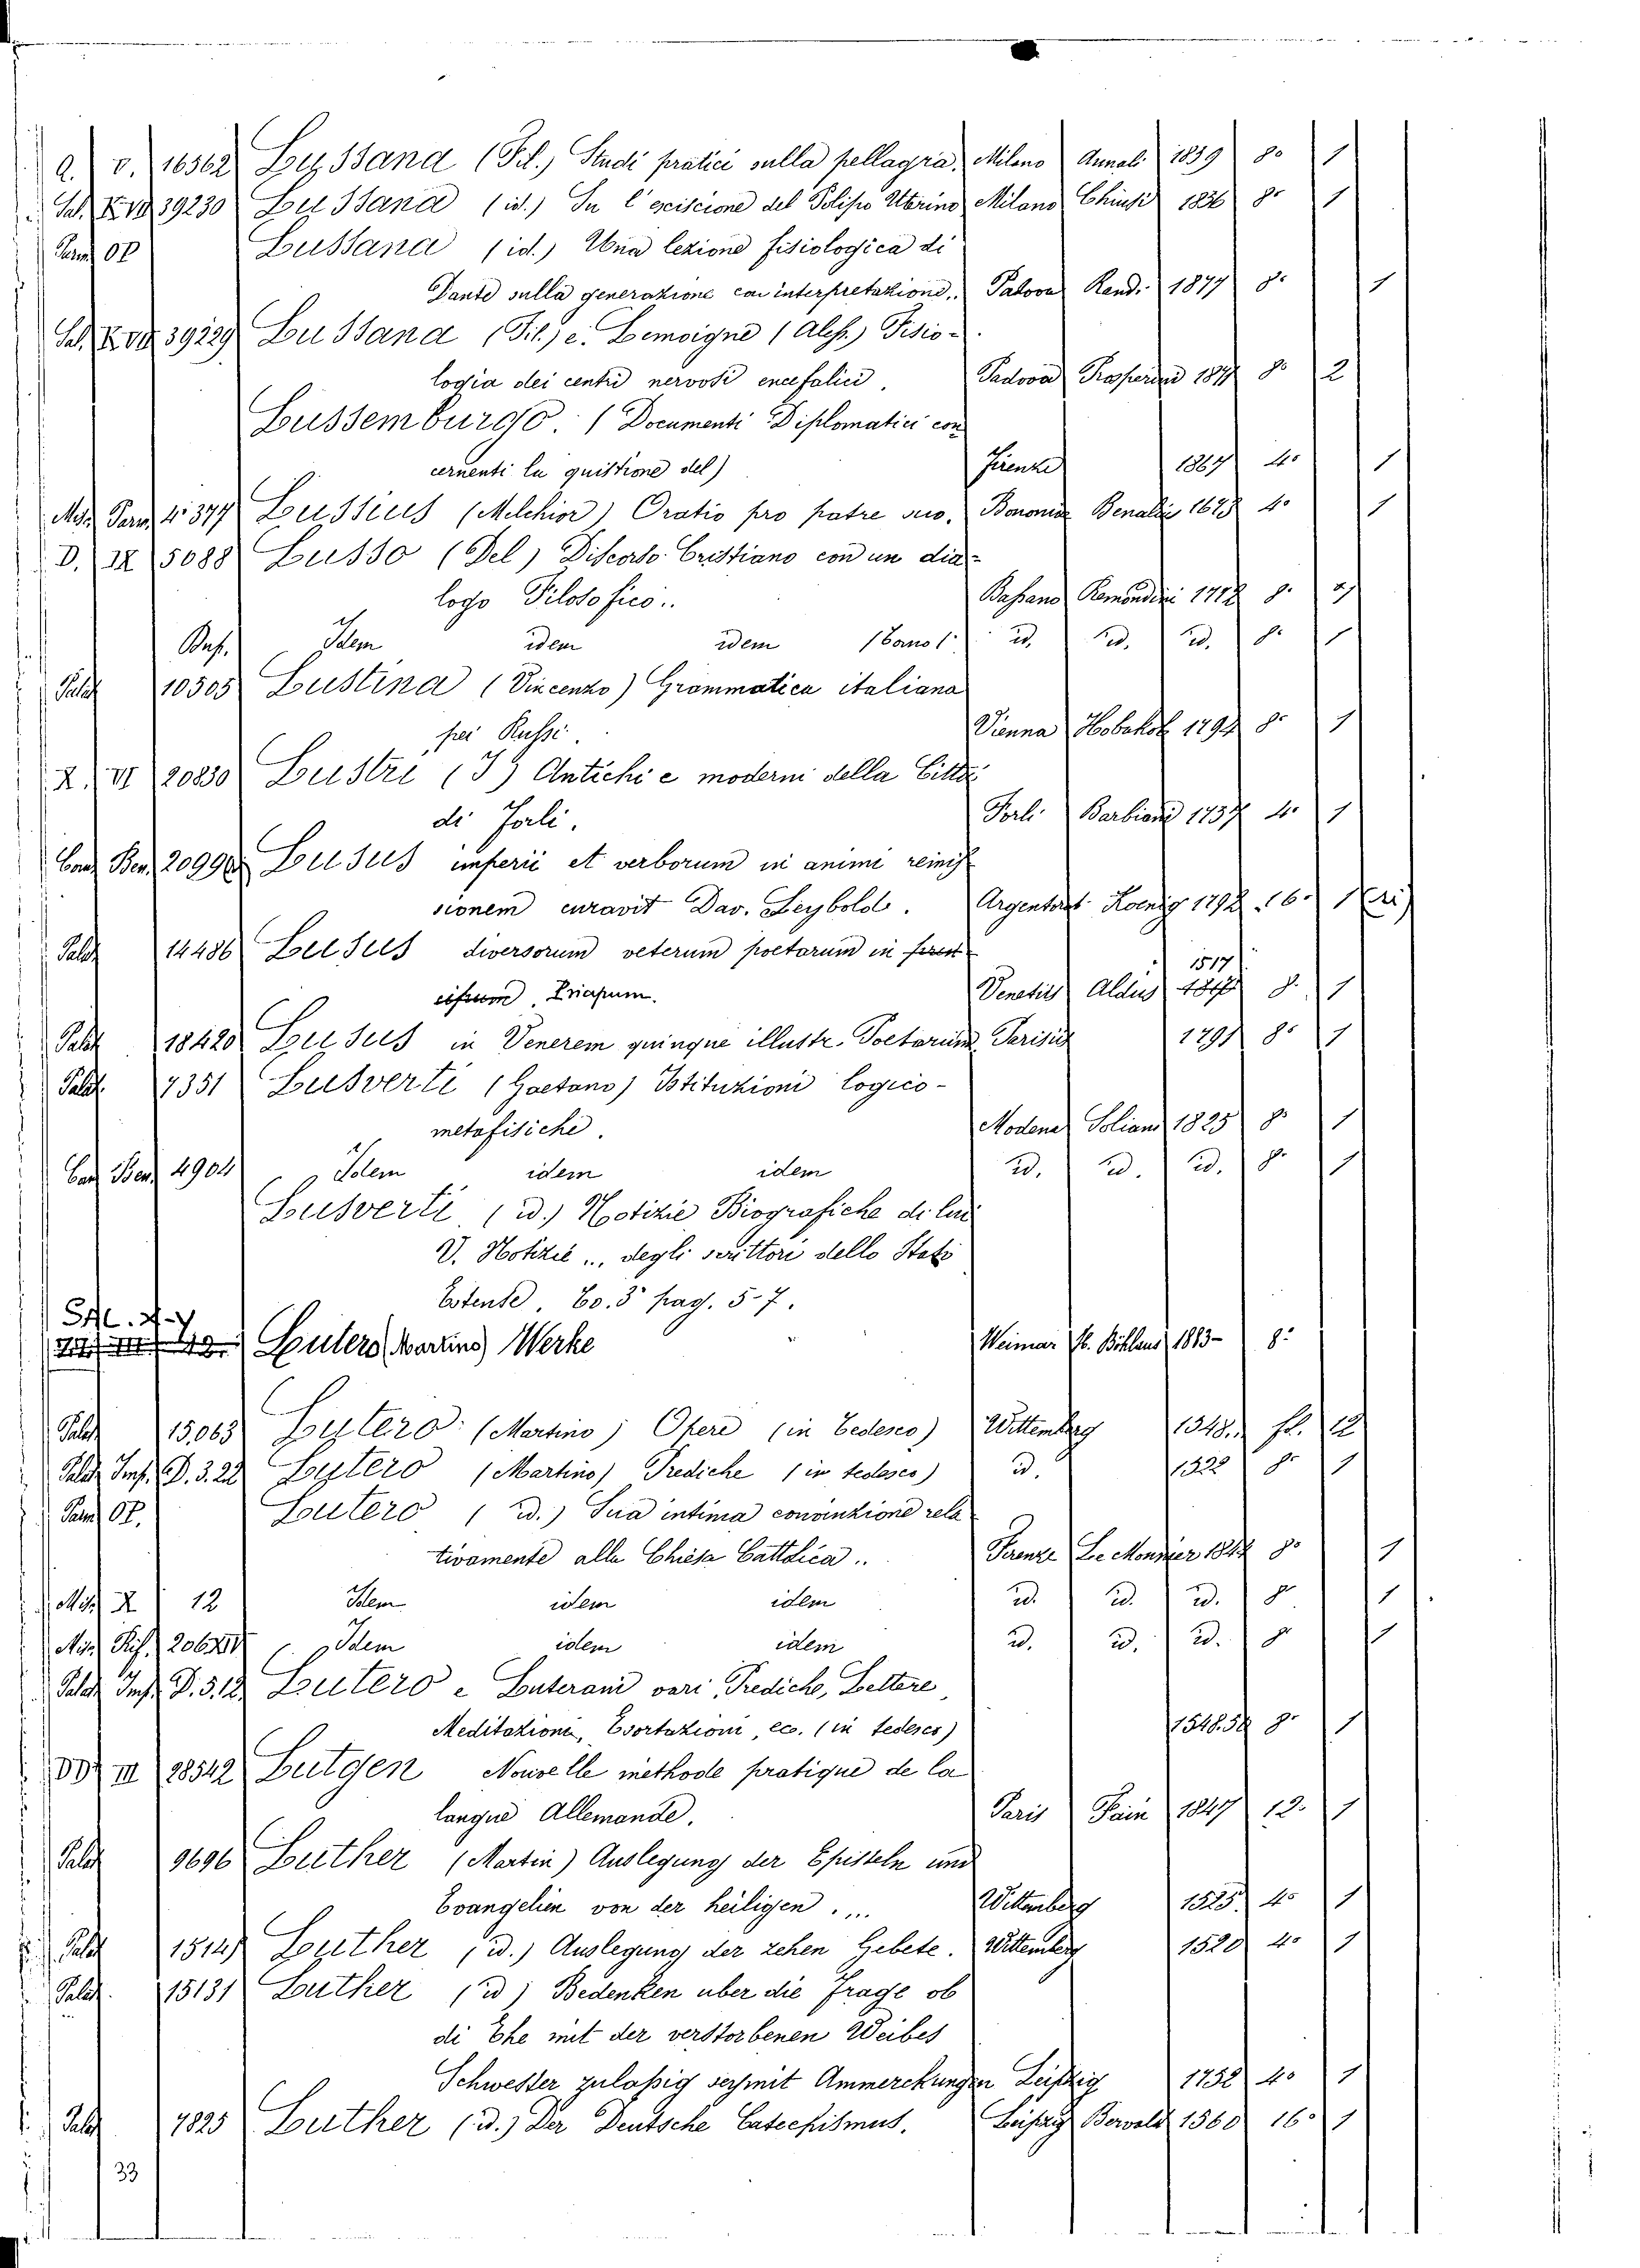 Q. V. 16362 Lussana (Fil.) Studi pratici sulla pellagra. Milano Annali 1859 8o 1
Sal. 39230 Lussana (id.) In l'escisione del Polipo Uterino Milano Chiusi 1836 8o 1
Parm OP Lussana (id.) Una lezione fisiologica di
Dante sulla generazione con interpretazione. Padova Rand. 1877 8o 1
Sal. 39229 Lussana (Fil.) e. Lemoigne (Aless.) Fisio-
logia dei centri nervosi encefalici. Padova Prosperini 1877 8o 2
Lussemburgo. (Documenti Diplomatici con
cernenti la quistione del) Firenze 1867 4o 1
Misc Parm 4o 377 Lussius (Melchior) Oratio pro patre suo. Bononiae Benatii 4o 1
D. IX 5088 Lusso (Del) Discorso Cristiano con un dia-
logo Filosofico.. Bassano Remondini 8o
Bas. Idem idem idem id. id. id. 8o 1
Palat 10505 Lustina (Vincenzo) Grammatica italiana
pei Russi. Vienna 8o 1
X. VI 20830 Lustri (I) Antichi e moderni della Città
di Forlì. Forlì Barbiani 1757 4o 1
Ben. 20990 Lusus imperii et verborum in animi
sionem curavit Dav. Seybold. Argentorat Koenig 1792 16o 1
Palat 14486 Lusus diversorum veterum poetarum in
Priapum. Venetiis Aldus 1517 8. 1
Palat 18420 Lusus in Venerem quinque illustr. Poetarum Parisiis 1791 8o 1
Palat. 7351 Lusverti (Gaetano) Istituzioni logico-
metafisiche. Modena Soliani 1825 8o 1
Ben. 4904 Idem idem idem id. id. id. 8o 1
Lusverti (id.) Notizie Biografiche di lui
V. Notizie ... degli scrittori dello Stato
Estense, To. 3o pag. 5-7.
Luters (Martino) Werke Weimar H. Böhlaus 1883- 8o
Palat 15,063 Lutero (Martino) Opere (in Tedesco) Wittemberg 1548. fl. 12
Palat Imp. D. 3. 22 Lutero (Martino) Prediche (in tedesco) id. 1522 8o 1
Parm OP. Lutero (id.) Sua intima convinzione rela
tivamente alla Chiesa Cattolica.. Firenze Le Monnier 8o 1
Misc. X 12 Idem idem idem id. id. id. 8o 1
Misc. Rif. 206 XIV Idem idem idem id. id. id. 8o 1
Palat Imp. D. 3. 12. Lutero e Luterani vari, Prediche, Lettere,
Meditazioni, Esortazioni, ec. (in tedesco) 1548.58 8o 1
III 28542 Lutgen Nouvelle méthode pratique de la
langue Allemande. Paris Pain 1847 12o 1
Palat 9696 Luther (Martin) Auslegung der Episteln und
Evangelien von der heiligen .... Wittenberg 1525. 4o 1
Palat 1514 Luther (id.) Auslegung der zehen Gebete. Wittemberg 1520 4o 1
Palat. 15131 Luther (id) Bedenken uber die Frage ob
di Ehe mit der verstorbenen Weibes
Schwester zulassig sey mit Ammerckungen Leipzig 1752 4o 1
Palat 7825 Luther (id.) Der Deutsche Catechismus. Leipzig Berwald 1560 16o 1
33